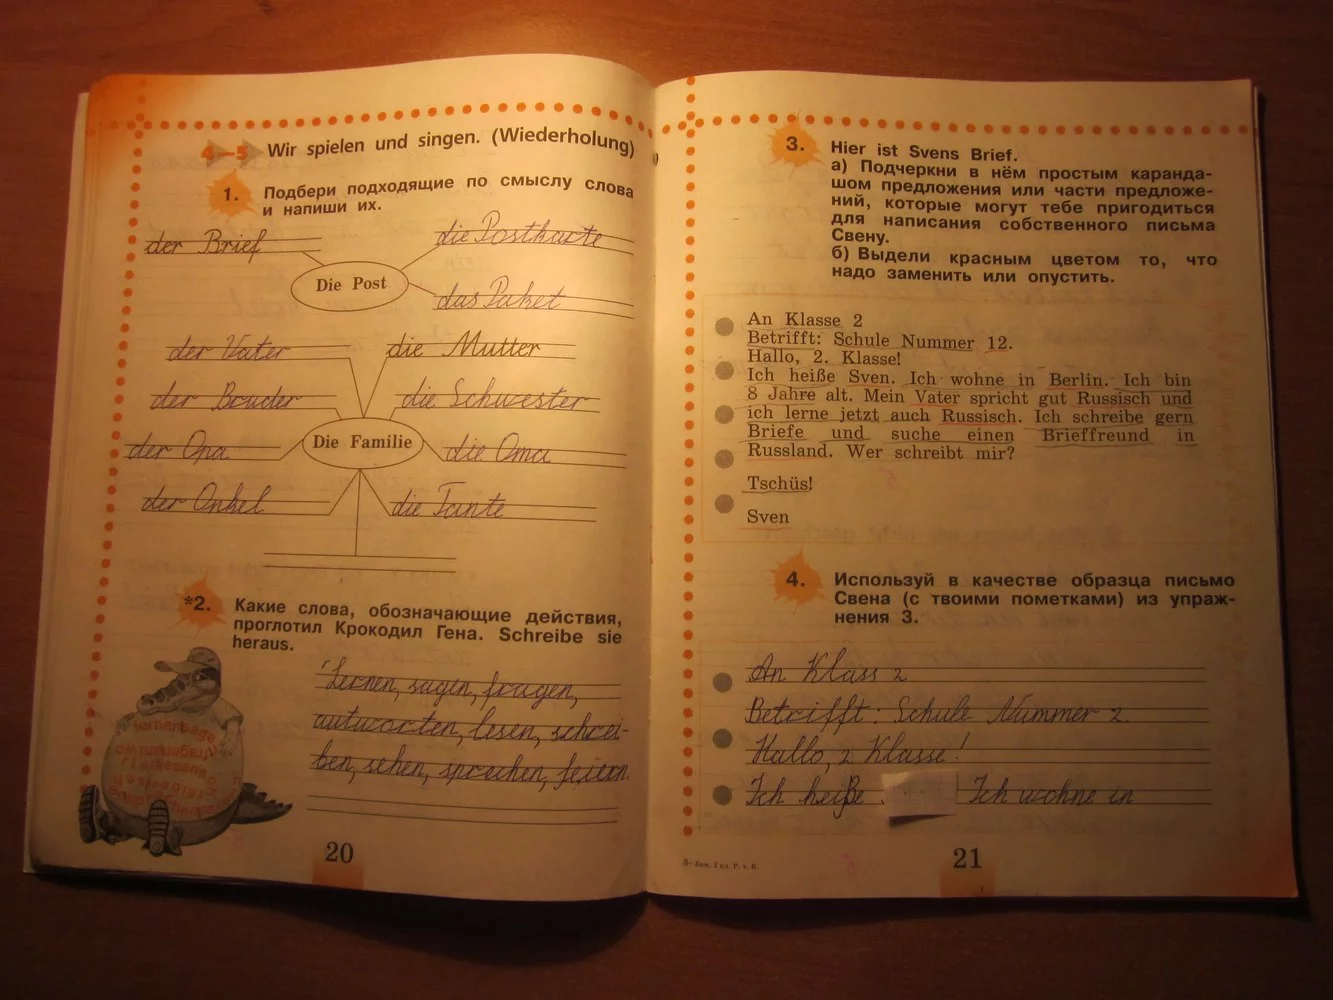 4–5 Wir spielen und singen. (Wiederholung)
1. Подбери подходящие по смыслу слова
и напиши их.
der Brief
die Postkarte
Die Post
das Paket
der Vater
die Mutter
der Bruder
die Schwester
Die Familie
der Opa
die Oma
der Onkel
die Tante
*2. Какие слова, обозначающие действия,
проглотил Крокодил Гена. Schreibe sie
heraus.
Lernen, sagen, fragen,
antworten, lesen, schrei-
ben, sehen, sprechen, feiern.
20
3. Hier ist Svens Brief.
а) Подчеркни в нём простым каранда-
шом предложения или части предложе-
ний, которые могут тебе пригодиться
для написания собственного письма
Свену.
б) Выдели красным цветом то, что
надо заменить или опустить.
An Klasse 2
Betrifft: Schule Nummer 12.
Hallo, 2. Klasse!
Ich heiße Sven. Ich wohne in Berlin. Ich bin
8 Jahre alt. Mein Vater spricht gut Russisch und
ich lerne jetzt auch Russisch. Ich schreibe gern
Briefe und suche einen Brieffreund in
Russland. Wer schreibt mir?
Tschüs!
Sven
4. Используй в качестве образца письмо
Свена (с твоими пометками) из упраж-
нения 3.
An Klass 2
Betrifft: Schule Nummer 2.
Hallo, 2 Klasse!
Ich heiße Ich wohne in
21